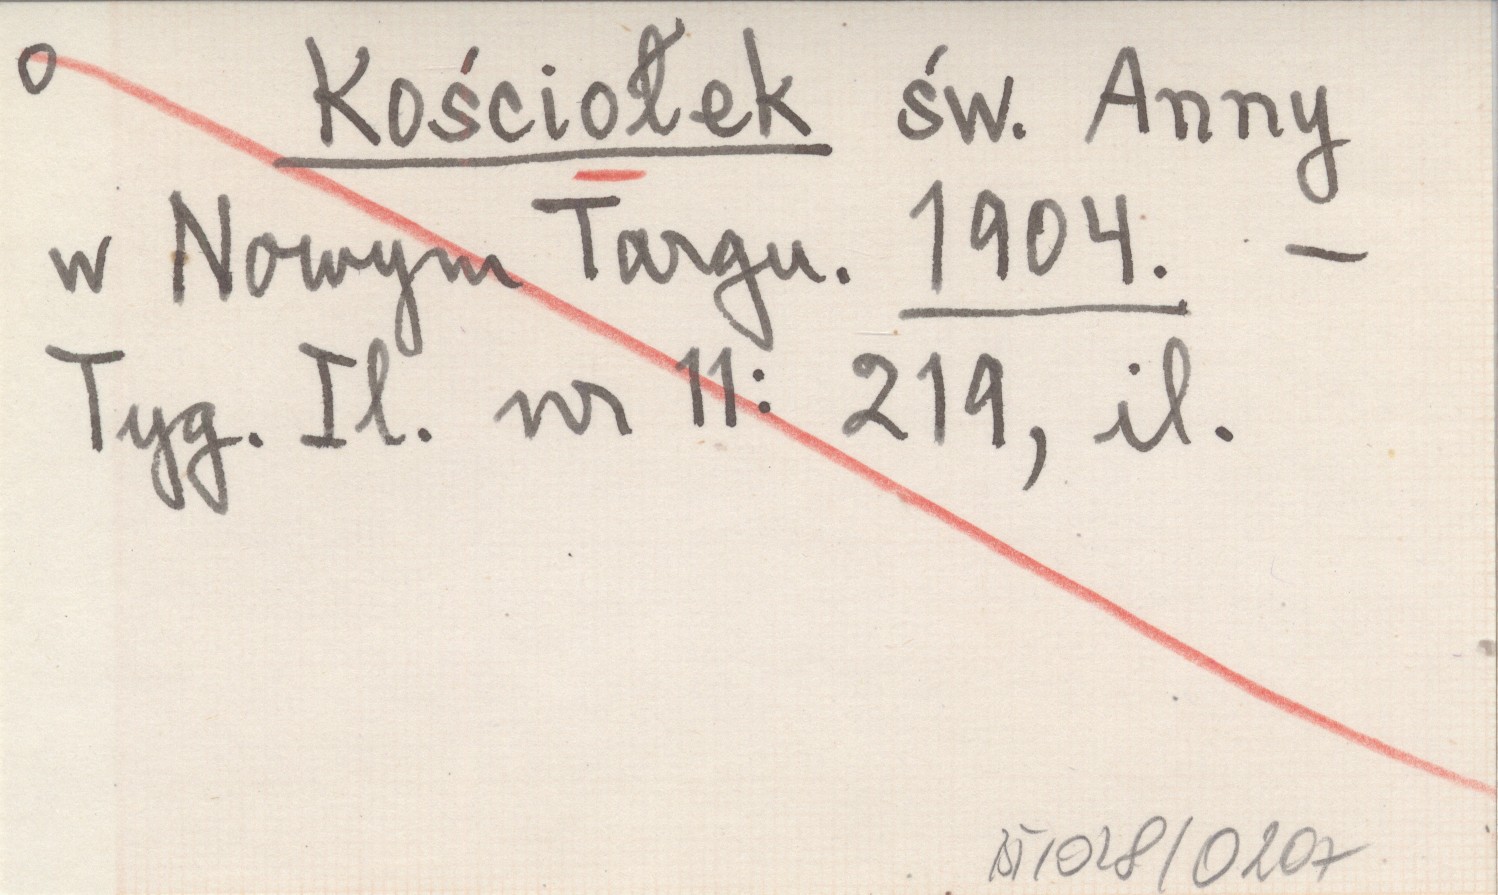 o Kościołek św. Anny
w Nowym Targu. 1904. –
Tyg. Il. nr 11: 219, il.
/028/0207